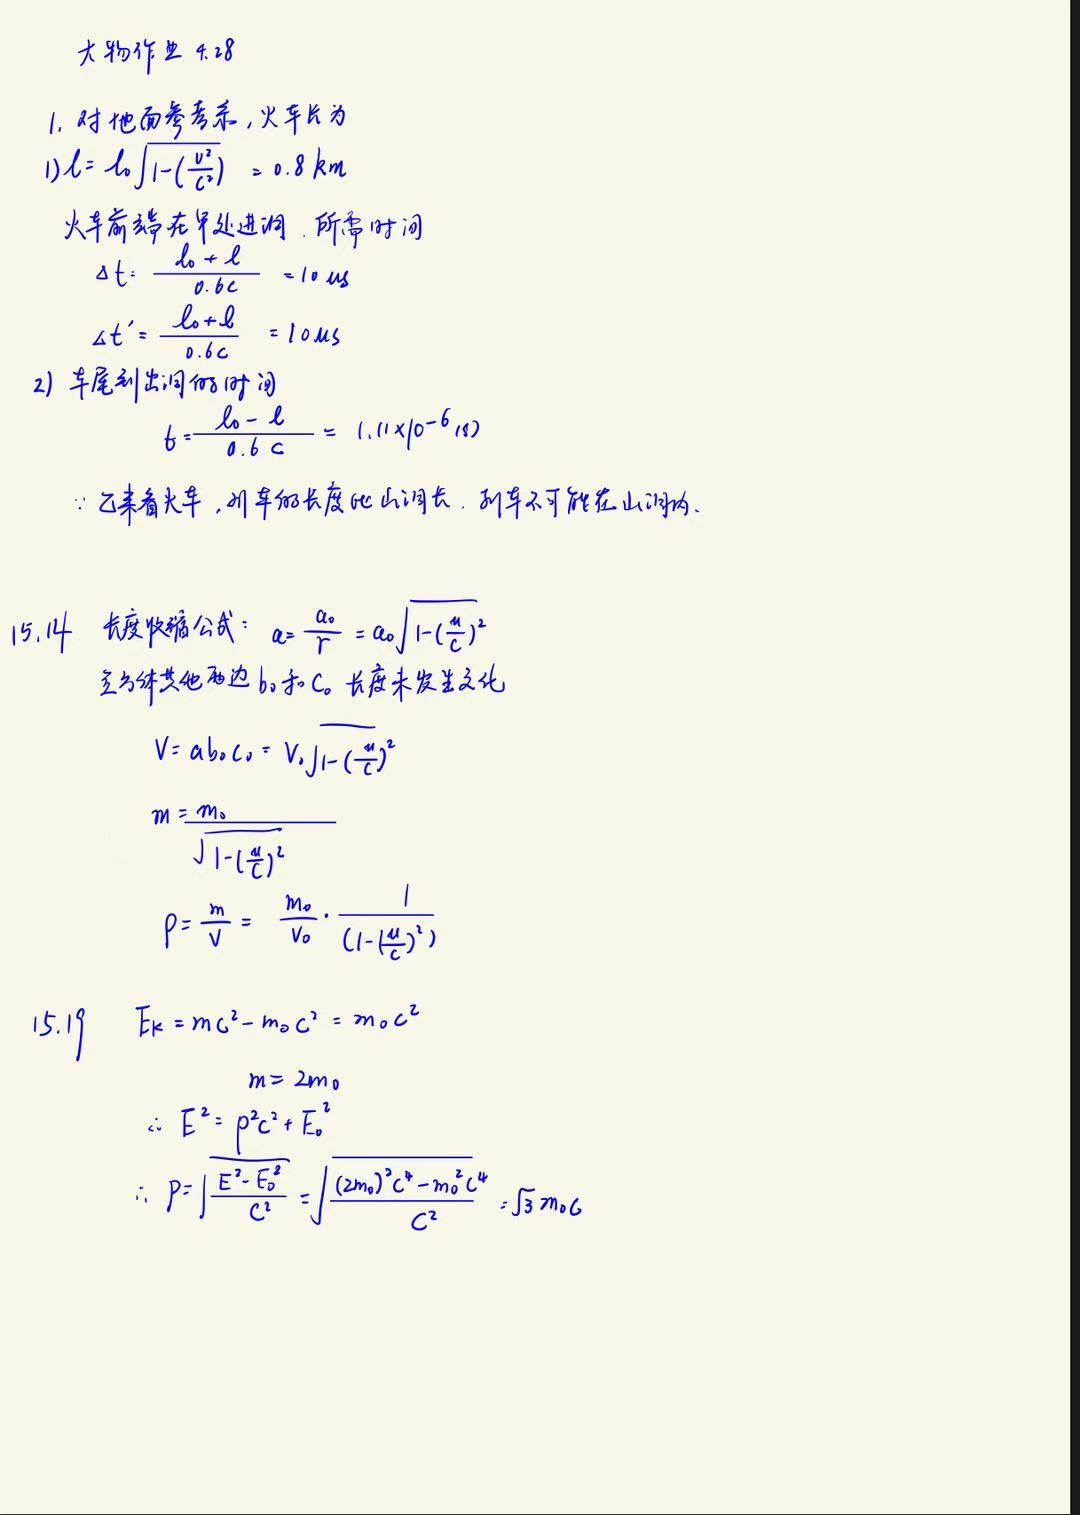 大物作业 4.28
1. 对地面参考系,火车长为
1) l = l₀√(1-(v²/c²)) = 0.8 km
火车前端在甲处进洞.所需时间
Δt = (l₀+l)/(0.6c) = 10 μs
Δt' = (l₀+l)/(0.6c) = 10 μs
2) 车尾到出洞的时间
t = (l₀-l)/(0.6c) = 1.11×10⁻⁶ (s)
∵ 乙来看火车,列车的长度比山洞长.列车不可能在山洞内.
15.14 长度收缩公式: a = a₀/r = a₀√(1-(u/c)²)
立方体其他两边 b₀ 和 C₀ 长度未发生变化
V = ab₀c₀ = V₀√(1-(u/c)²)
m = m₀/√(1-(u/c)²)
ρ = m/V = m₀/V₀ · 1/(1-(u/c)²)
15.19 Eₖ = mc² - m₀c² = m₀c²
m = 2m₀
∴ E² = p²c² + E₀²
∴ p = √((E²-E₀²)/c²) = √(((2m₀)²c⁴-m₀²c⁴)/c²) = √3 m₀c